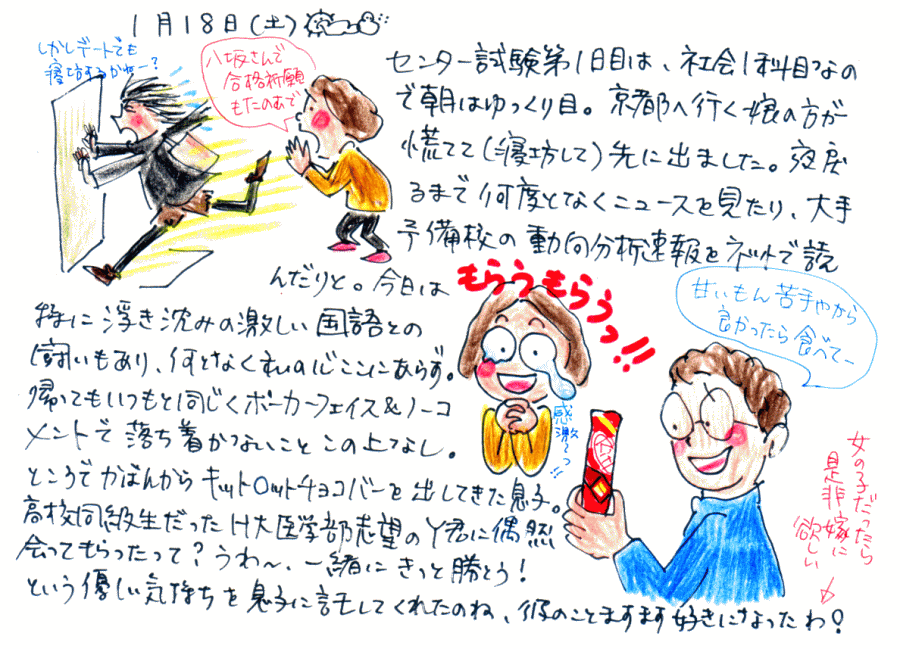 1月18日(土)
しかしデートでも
寝坊するかねー?
八坂さんで
合格祈願
もたのむで
センター試験第1日目は、社会1科目なの
で朝はゆっくり目。京都へ行く娘の方が
慌てて(寝坊して)先に出ました。夜戻
るまで何度となくニュースを見たり、大手
予備校の動向分析速報をネットで読
んだりと。今日は
特に浮き沈みの激しい国語との
闘いもあり、何となく私の心ここにあらず。
帰ってもいつもと同じくポーカーフェイス&ノーコ
メントで落ち着かないことこの上なし。
ところでかばんからキット〇ットチョコバーを出してきた息子。
高校同級生だったH大医学部志望のY君に偶然
会ってもらったって?うわ〜、一緒にきっと勝とう!
という優しい気持ちを息子に託してくれたのね、彼のことますます好きになったわ!
もらうもらうっ!!
感激てっ!!
甘いもん苦手やから
良かったら食べてー
女の子だったら
是非嫁に
欲しい